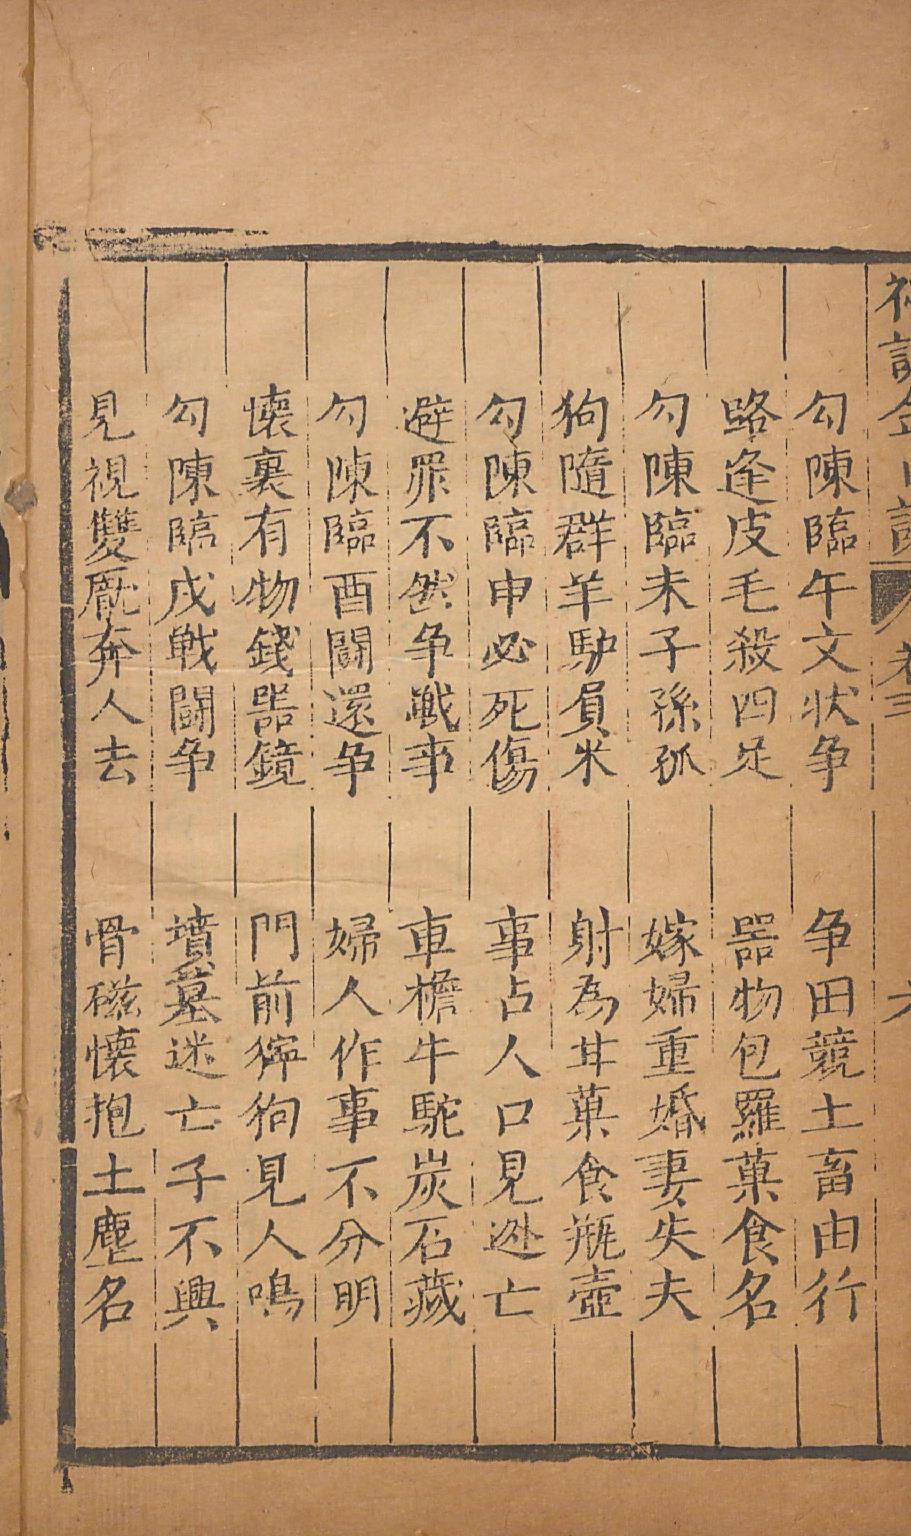 勾陳臨午文状争　争田競土畜由行
路逢皮毛殺四足　器物包羅菓食名
勾陳臨未子孫孤　嫁婦重婚妻失夫
狗隨群羊馿負米　射為甘菓食瓶壺
勾陳臨申必死傷　事占人口見逃亡
避罪不然争戦事　車檐牛駝炭石藏
勾陳臨酉闘還争　婦人作事不分明
懐裏有物錢器鏡　門前獰狗見人鳴
勾陳臨戌戦闘争　墳墓迷亡子不興
見視雙厭奔人去　骨磁懐抱土塵名